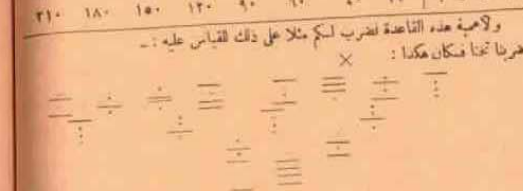 ٢١٠ ١٨٠ ١٥٠ ١٢٠ ٩٠
ولاهمية هذه القاعدة لضرب لسكم مثلا على ذلك للقياس عليه : ـ
ضربنا تختا فسكان هكذا :